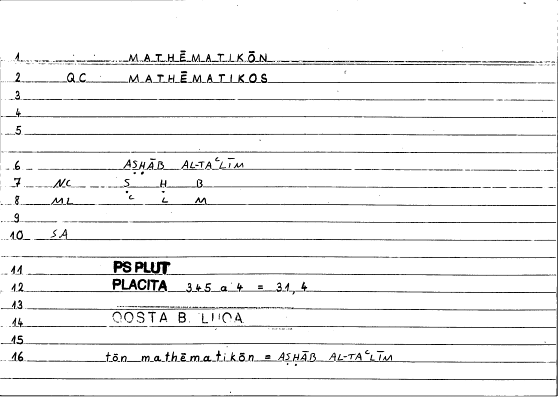 1 MATHĒMATIKŌN
2 QC MATHĒMATIKOS
3
4
5
6 AṢḤĀB AL-TAᶜLĪM
7 NC Ṣ Ḥ B
8 ML ᶜ L M
9
10 SA
11 PS PLUT
12 PLACITA 345 a 4 = 31,4
13
14 QOSTA B. LUCA
15
16 tōn mathēmatikōn = AṢḤĀB AL-TAᶜLĪM